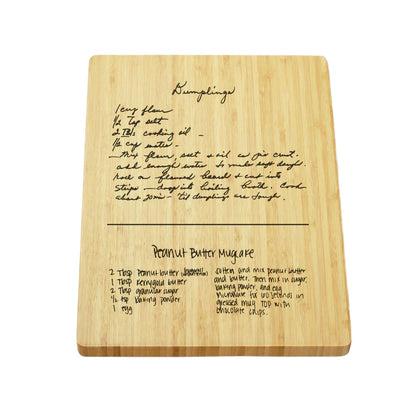 Dumplings
1 cup flour
1/2 Tsp salt
2 Tbs cooking oil -
1/2 cup water -
- Mix flour, salt & oil as pie crust.
add enough water to make soft dough.
Roll on floured board & cut into
strips - drop into boiling broth. Cook
about 20 min - 'til dumplings are tough.
Peanut Butter Mugcake
2 Tbsp Peanut butter
1 Tbsp Kerrygold butter
2 Tbsp granular sugar
1/2 tsp baking powder
1 egg
Soften and mix peanut butter
and butter. Then mix in sugar,
baking powder, and egg
Microwave for 60 seconds in
greased mug. TOP with
chocolate chips.